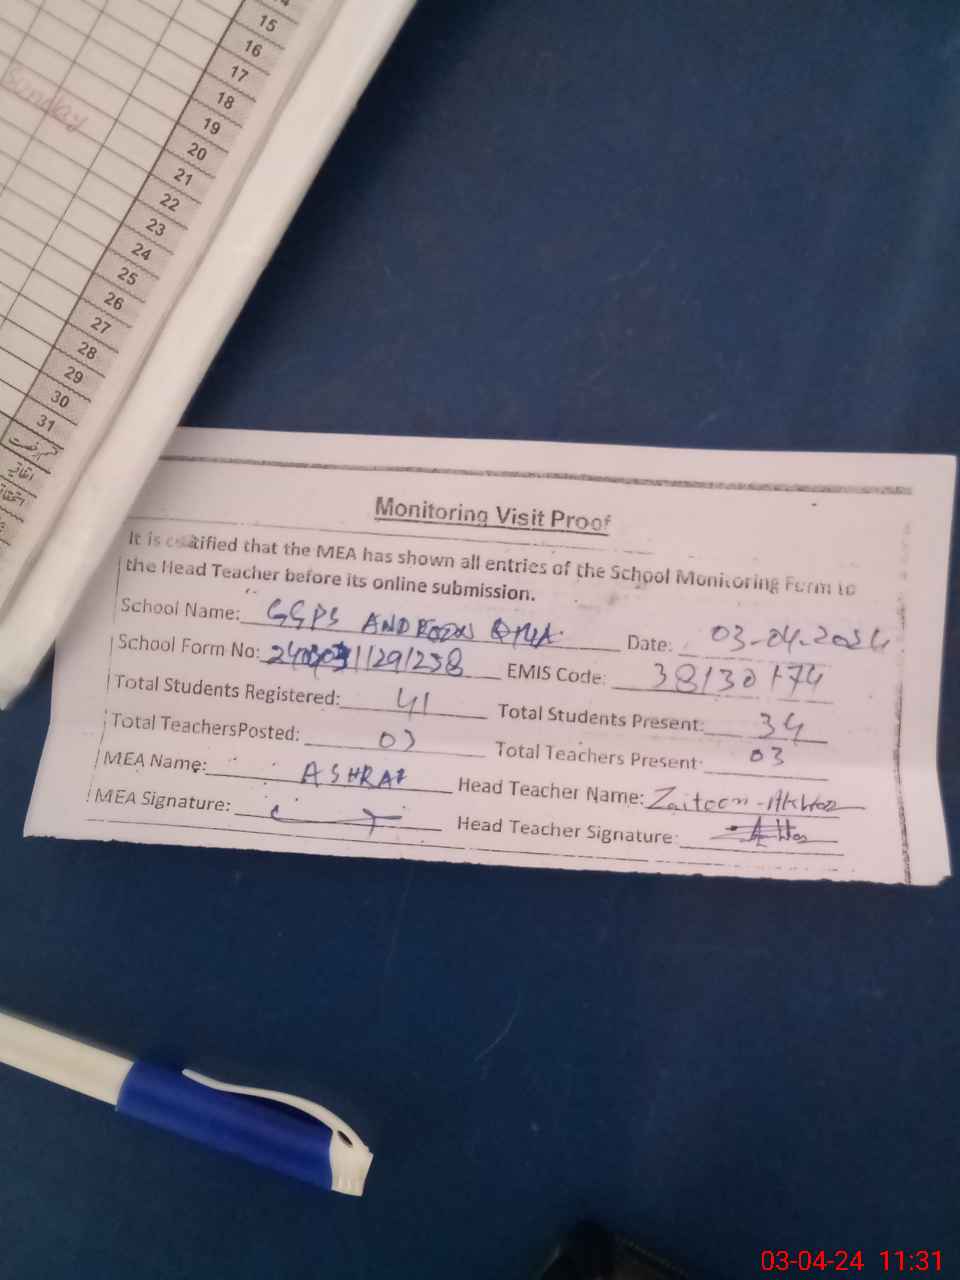 15
16
17
18
19
20
21
22
23
24
25
26
27
28
29
30
31
Sunday
اتفاقیہ
Monitoring Visit Proof
It is certified that the MEA has shown all entries of the School Monitoring Form to
the Head Teacher before its online submission.
School Name: GGPS ANDROON Date: 03-04-2024
School Form No: EMIS Code: 38130174
Total Students Registered: 41 Total Students Present: 34
Total TeachersPosted: 03 Total Teachers Present: 03
MEA Name: ASHRAF Head Teacher Name: Zaitoon-Akhtar
MEA Signature: Head Teacher Signature:
03-04-24 11:31